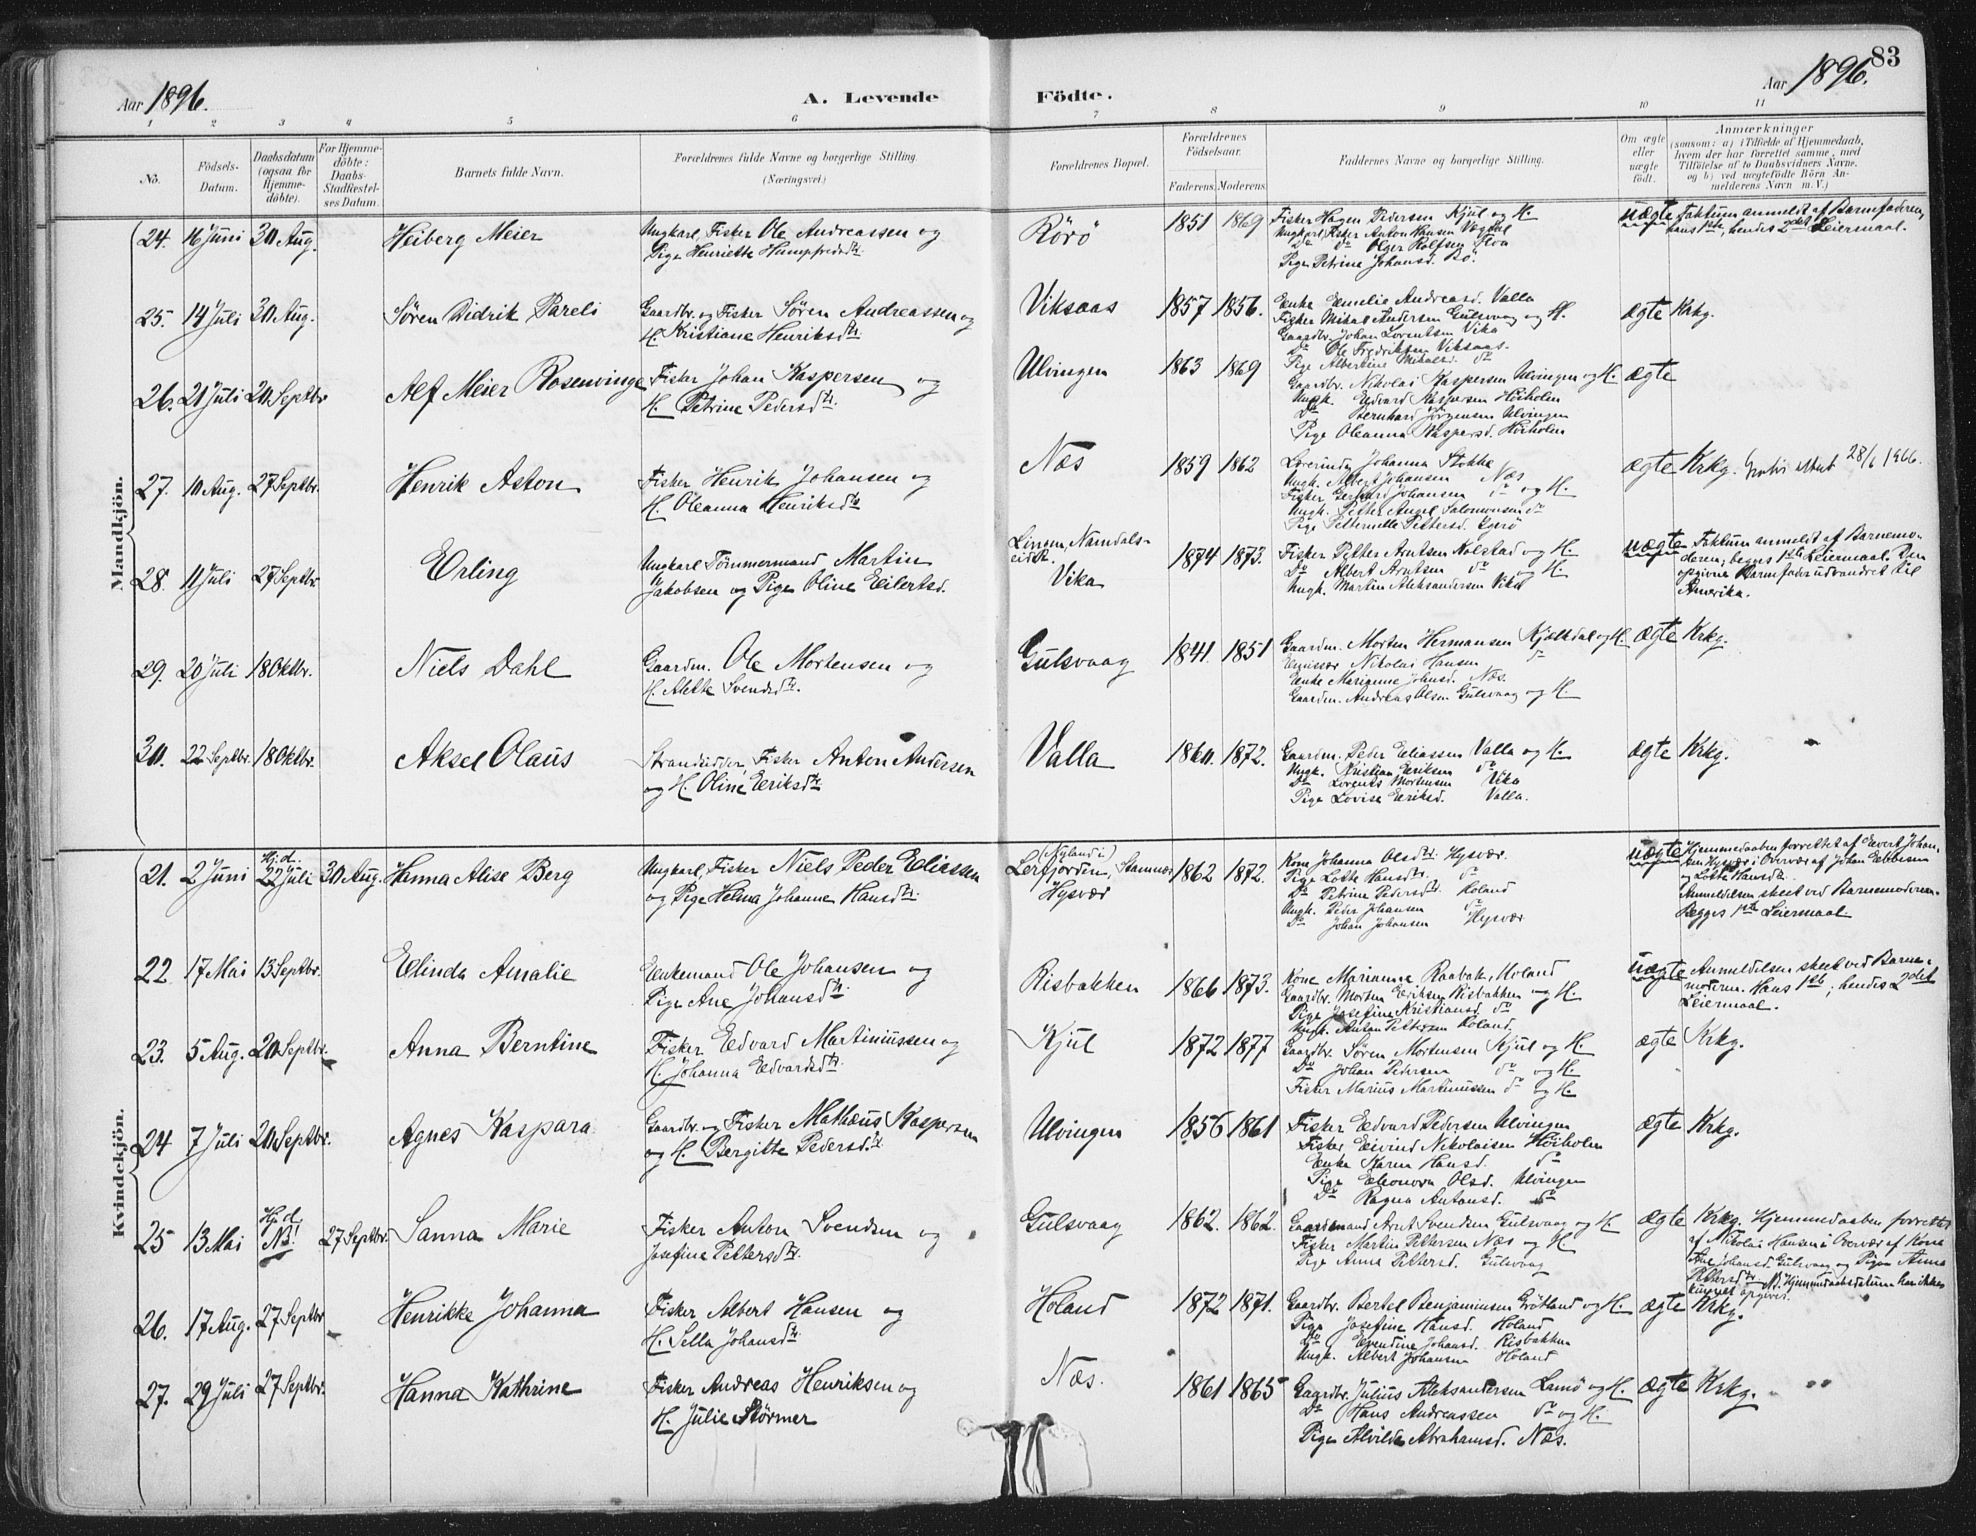 Aar 1896.
A. Levende Fødte.
Aar 1896.
83
1 2 3 4 5 6 7 8 9 10 11
No.
Fødsels-
Datum.
Daabsdatum
(ogsaa for
Hjemme-
døbte).
For Hjemme-
døbte:
Daabs-
Stadfæstel-
ses Datum.
Barnets fulde Navn.
Forældrenes fulde Navne og borgerlige Stilling.
(Næringsvei.)
Forældrenes Bopæl.
Forældrenes
Fødselsaar.
Faderens. Moderens.
Faddernes Navne og borgerlige Stilling.
Om ægte
eller
uægte
født.
Anmærkninger
(saasom: a) i Tilfælde af Hjemmedaab,
hvem der har forrettet samme, med
Tilføielse af to Daabsvidners Navne.
og b) ved uægtefødte Børn An-
melderens Navn m. V.)
Mandkjön.
24. 16 Juni 30 Aug. Heiberg Meier
Ungkarl, Fisker Ole Andreassen og
Pige Henriette Humpfredsdtr.
Rörö 1851 1869
Fisker Hagen Pedersen Kjul og H.
Ungkarl, Fisker Anton Hansen Vagdal
Do do Olger Rolfsen Floa
Pige Petrine Johansd. Bö.
uægte Faktum anmeldt af Barnefaderen,
hans 1ste, hendes 2det Leiermaal.
25. 14 Juli 30 Aug. Søren Didrik Pareli
Gaardbr. og Fisker Søren Andreassen og
H. Kristiane Henriksdtr.
Viksaas 1857 1856.
Enke Emelie Andreasd. Valla
Fisker Mikal Andersen Gulsvaag og H.
Gaardbr. Johan Lorentsen Vika
Do Ole Fredriksen Viksaas.
Pige Albertine Mikalsd. do
ægte Krkg.
26. 21 Juli 20 Septbr. Alf Meier Rosenvinge
Fisker Johan Kaspersen og
H. Petrine Pedersdtr.
Ulvingen 1863 1869
Gaardbr. Nikolai Kaspersen Ulvingen og H.
Ungk. Edvard Kaspersen Höiholm
Do Bernhard Jörgensen Ulvingen
Pige Oleanna Kaspersd. Höiholm
ægte
27. 10 Aug. 27 Septbr. Henrik Aston
Fisker Henrik Johansen og
H. Oleanna Henriksdtr
Næs 1859 1862
Lærerinde Johanna Stokke
Ungk. Albert Johansen Næs
Fisker Gerhard Johansen do og H.
Ungk. Petter Angel Salomonsen do
Pige Petternelle Pettersd. Ygerö
ægte Krkg. 28/6 1966.
28. 11 Juli 27 Septbr. Erling
Ungkarl Tömmermand Martin
Jakobsen og Pige Oline Eilertsd.
Namdals-
eidet.
Vika
1874 1873.
Fisker Petter Arntsen Nolstad og H.
Do Albert Arntsen do og H.
Ungk. Martin Aleksandersen Vika
uægte Faktum anmeldt af Barnemo-
deren; begges 1ste Leiermaal. Den
opgivne Barnefader udvandret til
Amerika.
29. 20 Juli 18 Oktbr. Niels Dahl
Gaardm. Ole Mortensen og
H. Alette Svendsdtr.
Gulsvaag 1841. 1851
Gaardm. Morten Hermansen Kjælkdal og H.
Emissær Nikolai Hansen do
Enke Marianne Johnsd. Næs.
Gaardm. Andreas Olsen Gulsvaag og H.
ægte Krkg.
30. 22 Septbr. 18 Oktbr. Aksel Olaus
Strandsidder Fisker Anton Andersen
og H. Oline Eeriksdtr
Valla 1860. 1872.
Gaardm. Peder Eliassen Valla og H.
Ungk. Kristian Eeriksen do
Do Lorents Mortensen Vika
Pige Lovise Eeriksd. Valla.
ægte Krkg.
Kvindekjön.
21. 2 Juni Hj.d. 22 Juli 30 Aug. Hanna Alise Berg
Ungkarl, Fisker Niels Peder Eliassen
og Pige Helma Johanne Hansdtr.
(Nyland i)
Leirfjorden, Stamnæs
Hysvær
1862 1872.
Kone Johanna Olsdtr. Hysvær.
Pige Lotte Hansdtr. do
Do Petrine Pedersdtr. Holand
Ungk. Peder Johansen do
Do Johan Johansen Hysvær
uægte Hjemmedaaben forrettet af Evert Johan-
sen Hysvær i Overvær af Johan Ebbesen
og Lotte Hansdtr.
Anmeldelsen skeet ved Barnemoderen.
Begges 1ste Leiermaal.
22 17 Mai 13 Septbr. Elinda Amalie
Enkemand Ole Johansen og
Pige Ane Johansdtr.
Risbakken 1866 1873.
Kone Marianna Raabak, Holand
Gaardbr. Morten Eriksen Risbakken og H.
Pige Josefine Kristiansd. do
Ungk. Anton Pettersen Holand
uægte Anmeldelsen skeet ved Barne-
moderen. Hans 1ste, hendes 2det
Leiermaal.
23. 5 Aug. 20 Septbr. Anna Berntine
Fisker Edvard Martinussen og
H. Johanna Edvardsdtr.
Kjul 1872 1877
Gaardbr. Sören Mortensen Kjul og H.
Do Johan Pedersen do og H.
Fisker Marius Martinussen do og H.
ægte Krkg.
24 7 Juli 20 Septbr. Agnes Kaspara
Gaardbr. og Fisker Mathæus Kaspersen
og H. Bergitte Pedersdtr
Ulvingen 1856 1861
Fisker Edvard Pedersen Ulvingen
Fisker Eivind Nikolaisen Höiholm
Enke Karen Hansd. do
Pige Eleonora Olsd. Ulvingen
Do Ragna Antonsd. do
ægte Krkg.
25 13 Mai Hj.d. NB! 27 Septbr. Sanna Marie
Fisker Anton Svendsen og
Josefine Pettersdtr.
Gulsvaag 1862. 1862.
Gaardmand Arnt Svendsen Gulsvaag og H.
Fisker Martin Pettersen Næs og H.
Pige Anna Pettersd. Gulsvaag
ægte Krkg. Hjemmedaaben forrettet
af Nikolai Hansen i Overvær af Kone
Ane Johansd. Gulsvaag og Pigen Anna
Pettersdtr. NB. Hjemmedaabsdatum har ikke
kunnet opgives.
26. 17 Aug. 27 Septbr Henrikke Johanna
Fisker Albert Hansen og
H. Sella Johansdtr.
Holand 1872 1871.
Gaardbr. Bertel Benjaminsen Grötland og H.
Pige Josefine Hansd. Holand
Do Evendine Johansd. Risbakken
Ungk. Albert Johansen Holand
ægte Krkg.
27. 29 Juli 27 Septbr. Hanna Kathrine
Fisker Andreas Henriksen og
H. Julie Störmer
Næs. 1861 1865
Gaardbr. Julius Aleksandersen Lamö og H.
Do Hans Andreassen do og H.
Pige Alvilde Abrahamsd. Næs.
ægte Krkg.